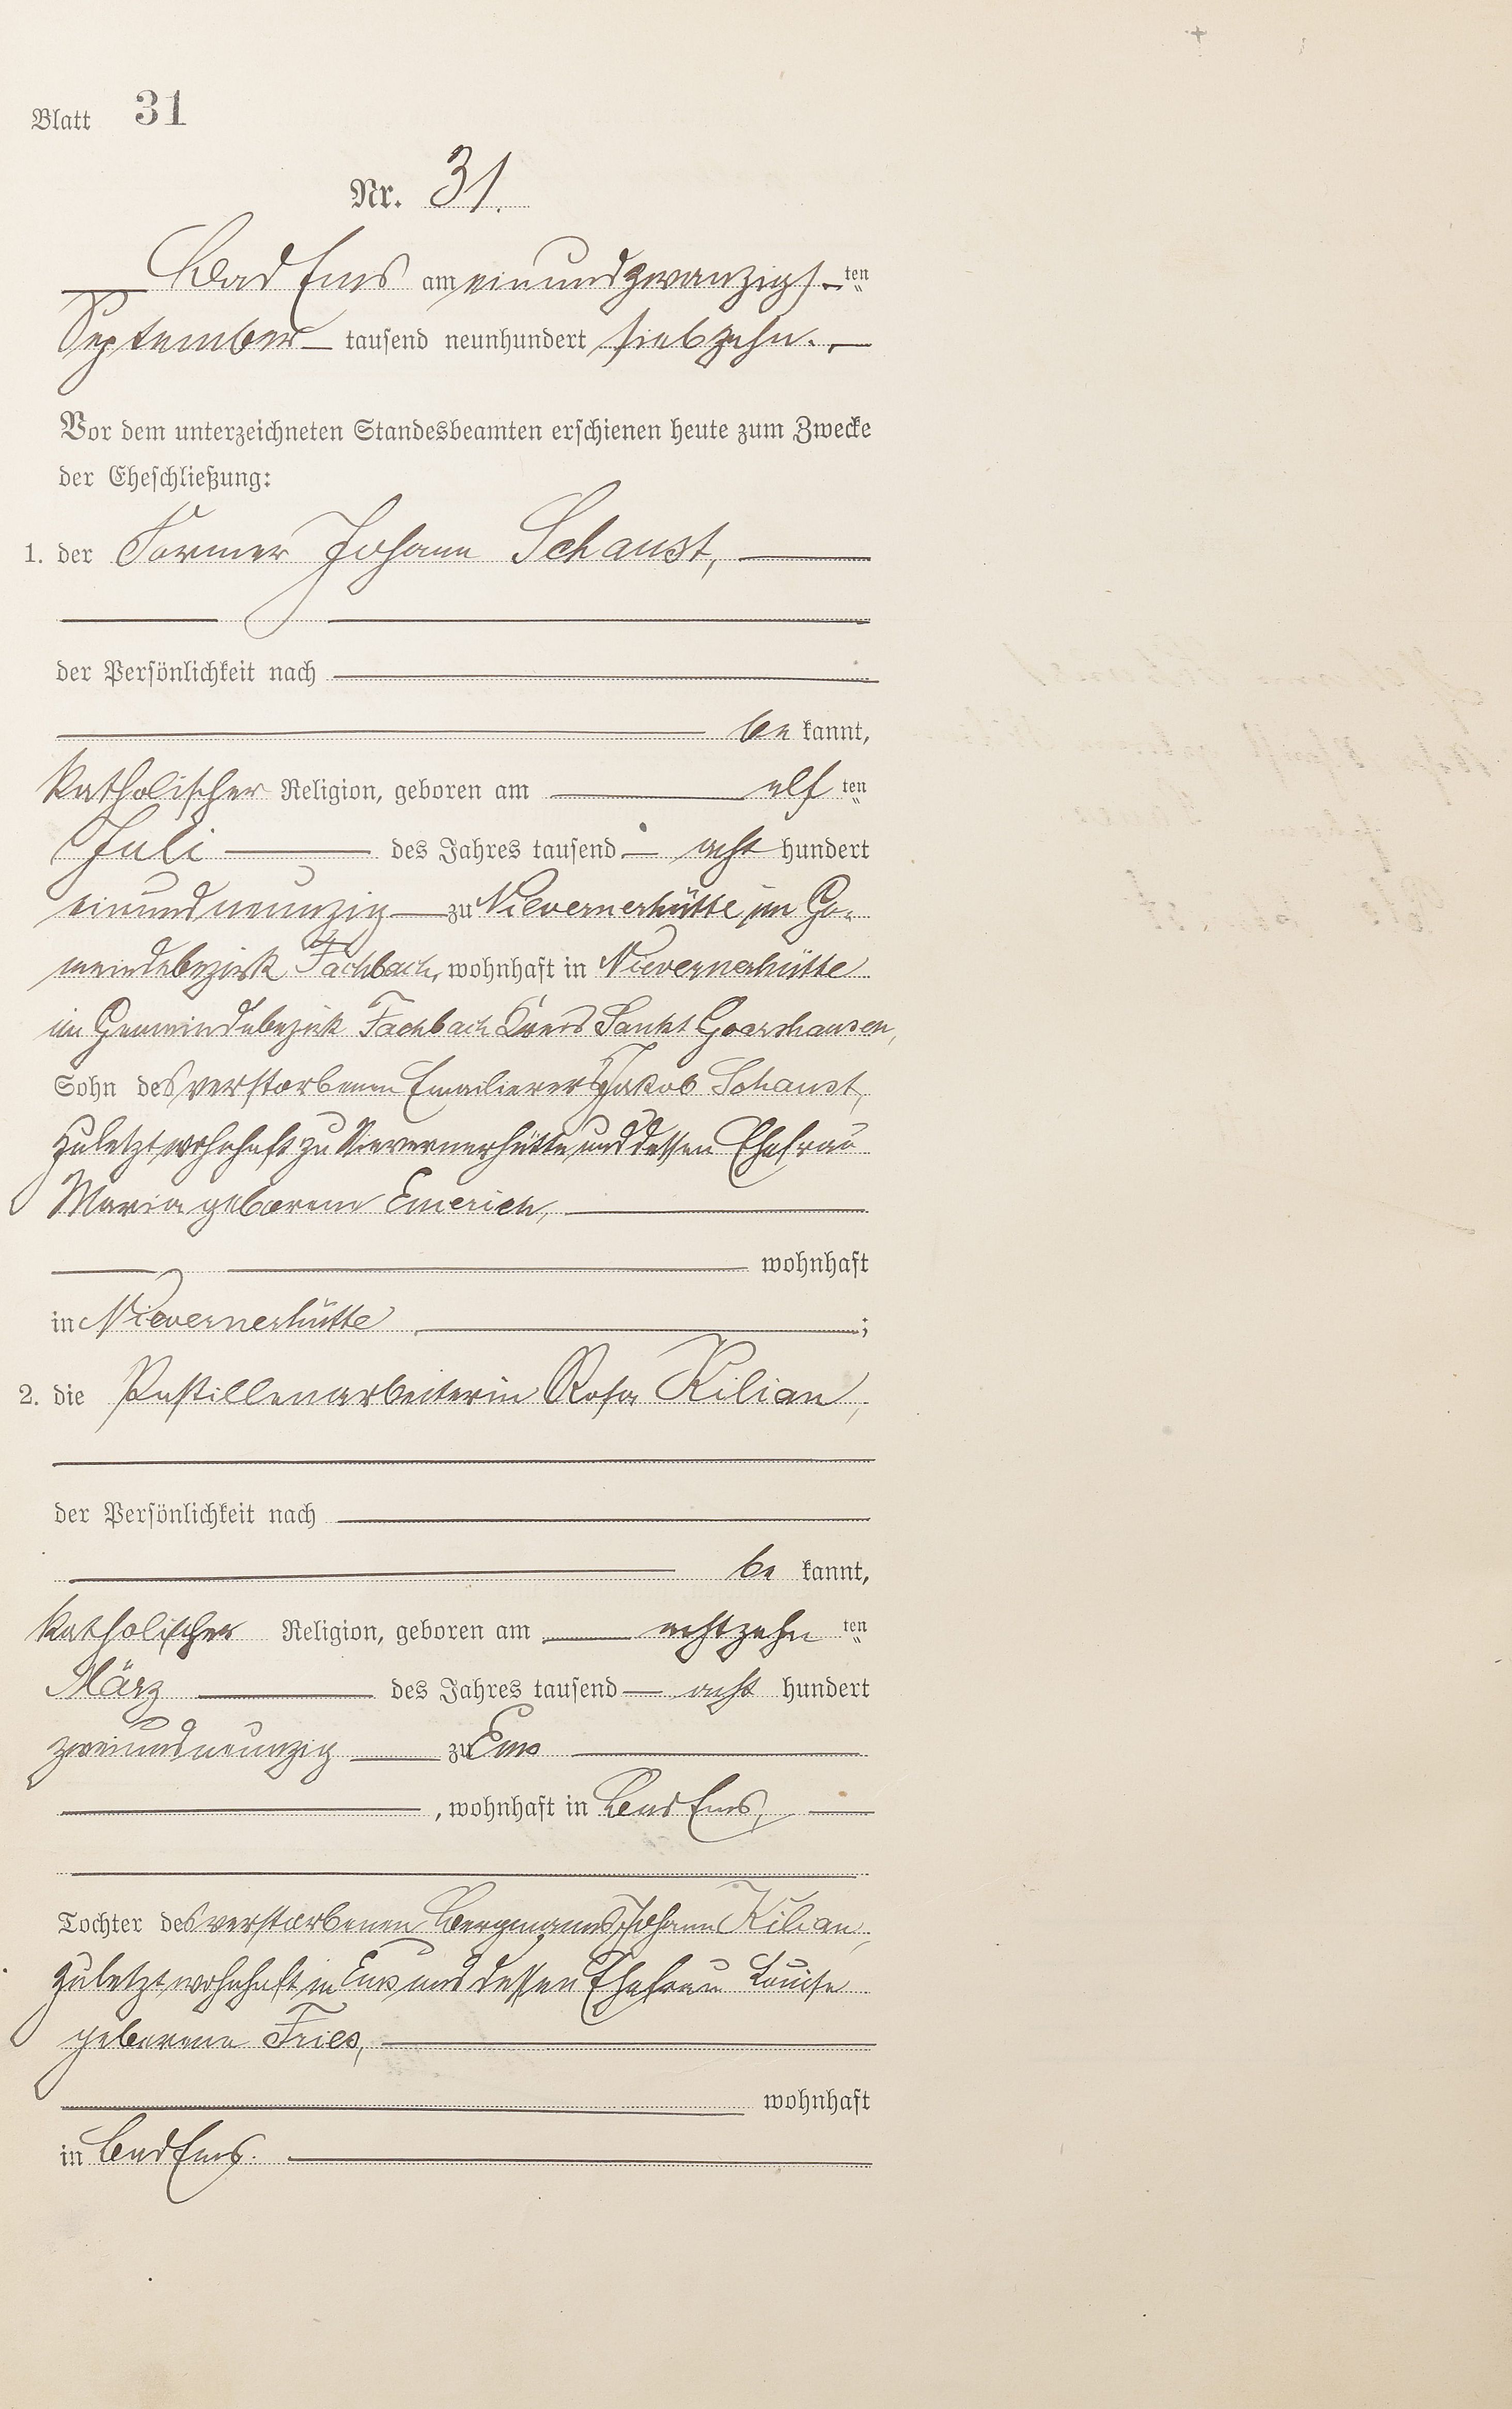 Blatt 31
Nr. 31.
Bad Ems am einundzwanzigsten
September tausend neunhundert siebzehn.
Vor dem unterzeichneten Standesbeamten erschienen heute zum Zwecke
der Eheschließung:
1. der Former Johann Schaust,
der Persönlichkeit nach
be kannt,
katholischer Religion, geboren am elf ten
Juli des Jahres tausend acht hundert
einundneunzig zu Nievernerhütte, im Ge-
meindebezirk Fachbach, wohnhaft in Nievernerhütte
im Gemeindebezirk Fachbach Kreis Sankt Goarshausen,
Sohn des verstorbenen Emaillierers Jakob Schaust,
zuletzt wohnhaft zu Nievernerhütte und dessen Ehefrau
Maria geborene Emerich,
wohnhaft
in Nievernerhütte ;
2. die Pastillenarbeiterin Rosa Kilian,
der Persönlichkeit nach
be kannt,
katholischer Religion, geboren am achtzehn ten
März des Jahres tausend acht hundert
zweiundneunzig zu Ems
, wohnhaft in Bad Ems,
Tochter des verstorbenen Bergmanns Johann Kilian,
zuletzt wohnhaft in Ems und dessen Ehefrau Louise
geborene Fries,
wohnhaft
in Bad Ems.